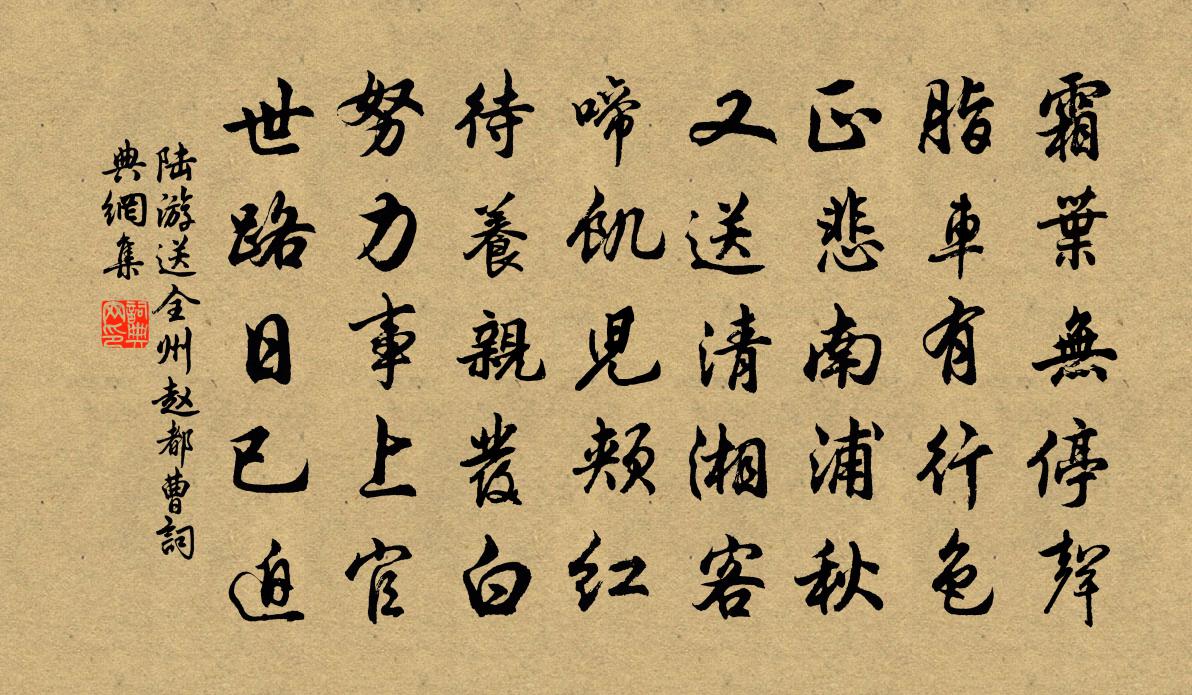 霜葉無停聲
脂車有行色
正悲南浦秋
又送清湘客
啼飢兒頰紅
待養親發白
努力事上官
世路日已迫
陆游送全州赵都曹詞
典網集
詞典
网印